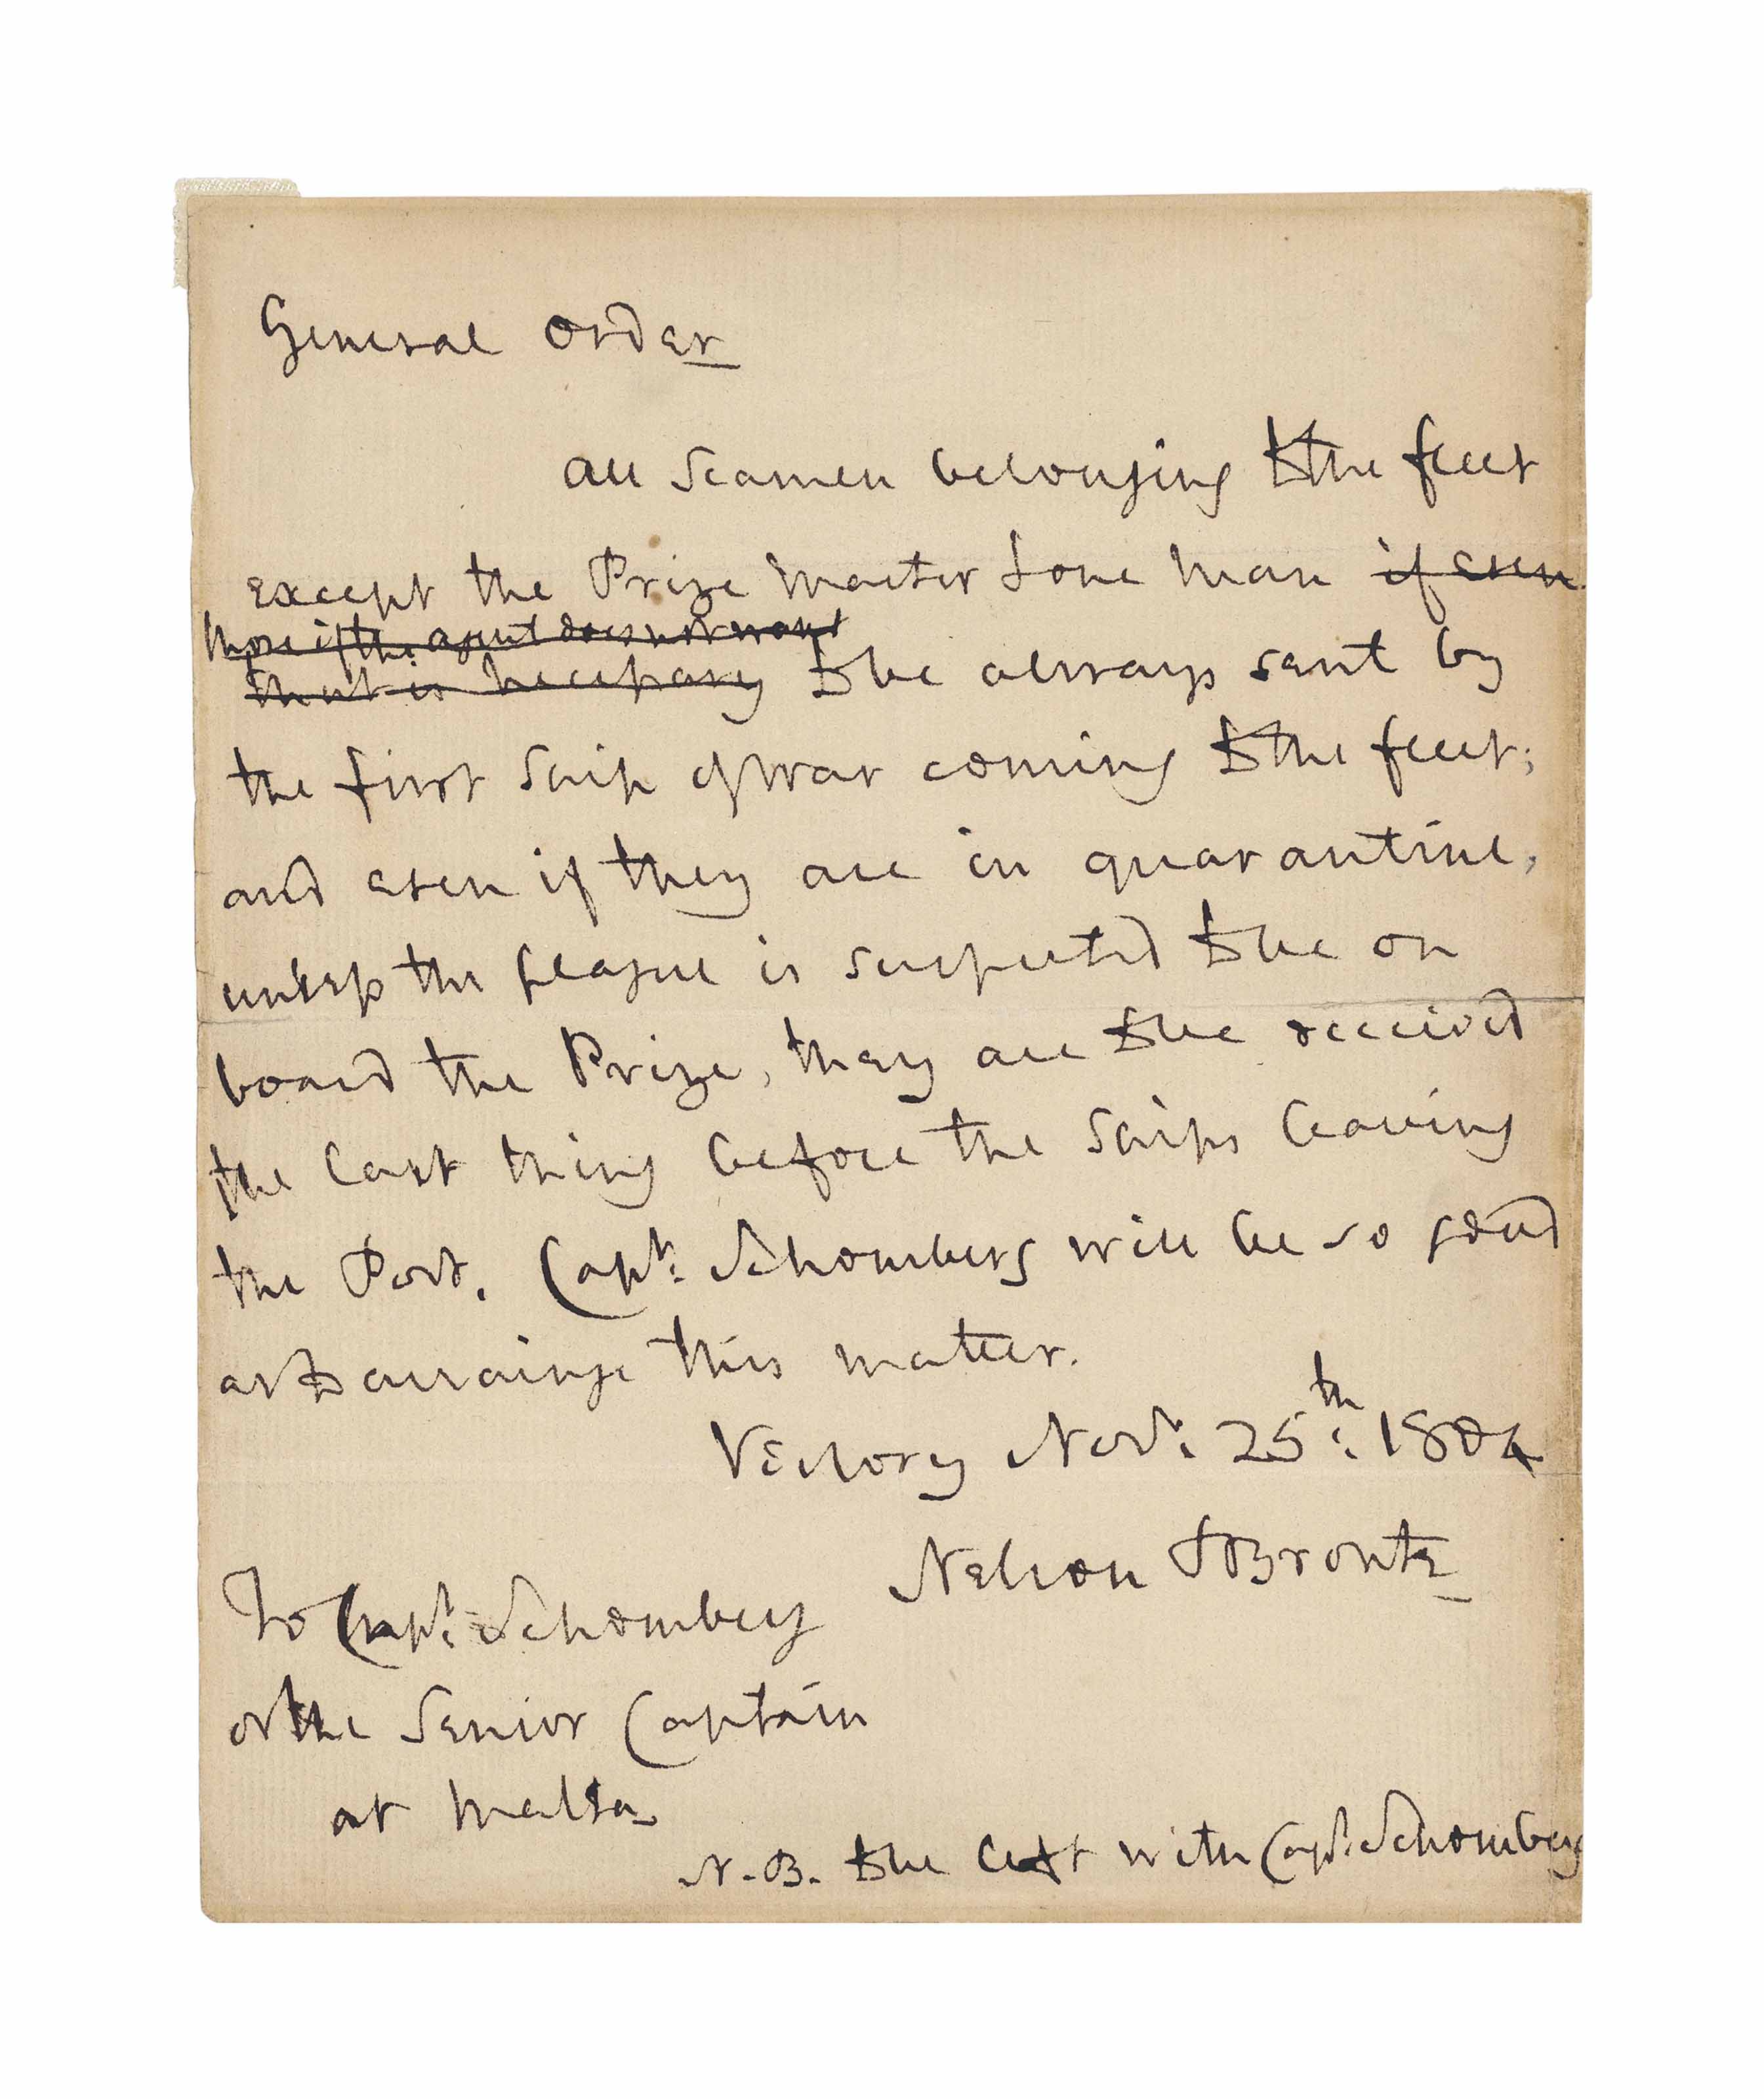 General Order
All Seamen belonging to the fleet
except the Prize Master & one Man if even
more if the agent does not want
that is necessary to be always sent by
the first Ship of War coming to the fleet;
and even if they are in quarantine,
unless the plague is suspected to be on
board the Prize, they are to be received
the last thing before the Ships leaving
the Port. Capt: Schomberg will be so good
as to arrainge this matter.
Victory Novr: 25th: 1804
Nelson & Bronte
To Capt: Schomberg
or the Senior Captain
at Malta
N.B. to be left with Capt: Schomberg